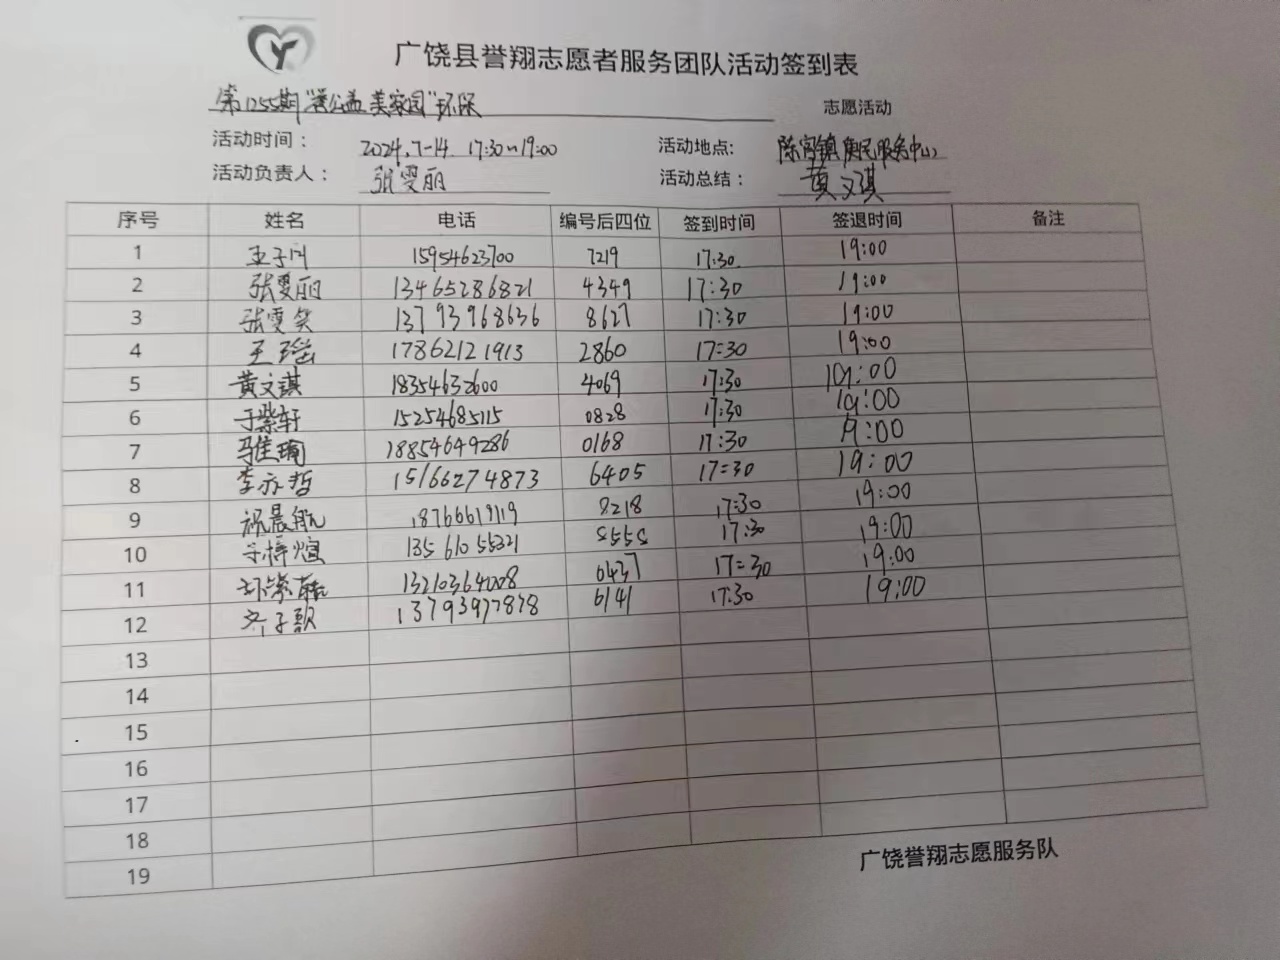 广饶县誉翔志愿者服务团队活动签到表
第1255期"誉公益 美家园"环保 志愿活动
活动时间： 2024.7-14 17:30~19:00 活动地点: 陈官镇便民服务中心
活动负责人： 张雯丽 活动总结： 黄文琪
序号 姓名 电话 编号后四位 签到时间 签退时间 备注
1 15954623700 7219 17:30 19:00
2 张雯丽 13465286821 4349 17:30 19:00
3 张雯笑 13793968636 8627 17:30 19:00
4 王瑶 17862121913 2860 17:30 19:00
5 黄文琪 18354632600 4069 17:30 19:00
6 于紫轩 15254685115 0828 17:30 19:00
7 马佳瑜 18854649286 0168 17:30 19:00
8 李亦哲 15166274873 6405 17:30 19:00
9 祝晨航 18766619119 8218 17:30 19:00
10 13561055321 8558 17:30 19:00
11 13210364008 6437 17:30 19:00
12 齐子歌 13793977878 6141 17:30 19:00
13
14
15
16
17
18
19
广饶誉翔志愿服务队